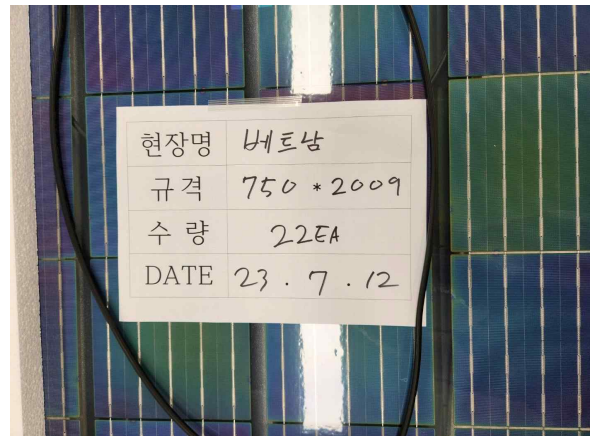 현장명 베트남
규격 750 * 2009
수량 22EA
DATE 23 . 7 . 12